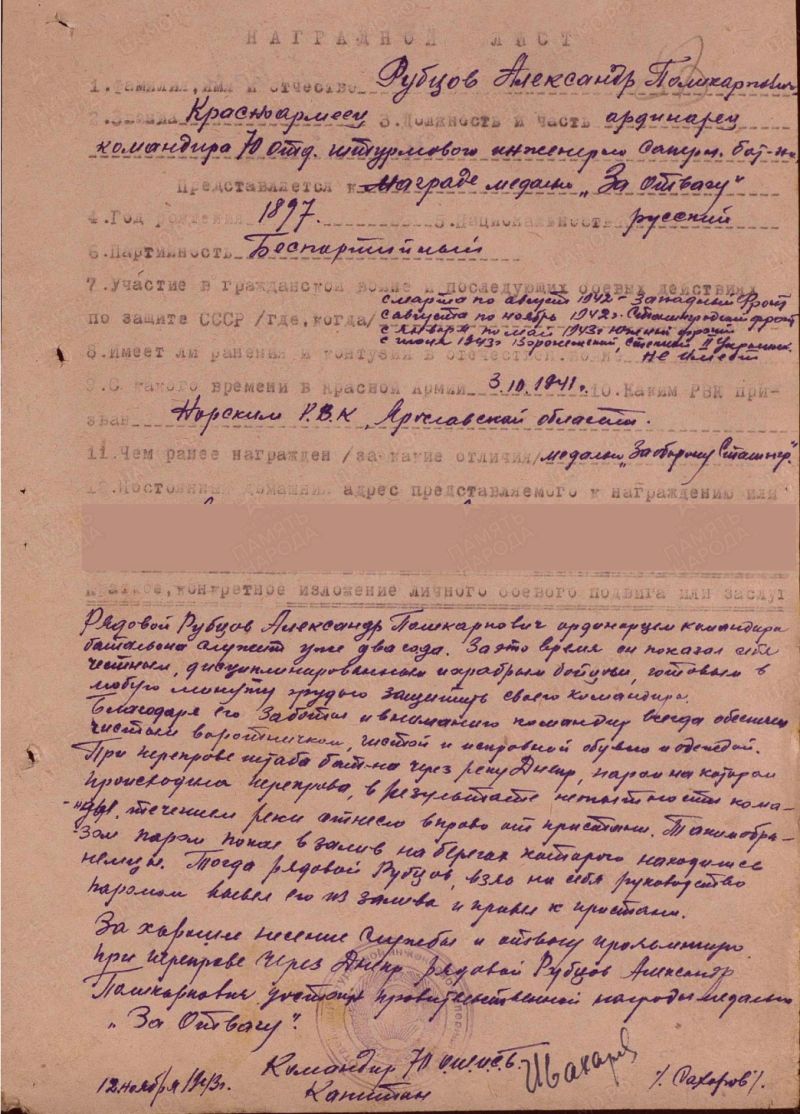 НАГРАДНОЙ ЛИСТ
1. Фамилия, имя и отчество Рубцов Александр Поликарпович
2. Звание Красноармеец 3. Должность и часть ординарец
командира 70 отд. штурмового инженерно саперн. бат-на
Представляется к награде медалью "За Отвагу"
4. Год рождения 1897. 5. Национальность русский
6. Партийность Беспартийный
7. Участие в гражданской войне и последующих боевых действиях
по защите СССР /где, когда/ с марта по август 1942г Западный Фронт
с августа по ноябрь 1942г. Сталинградский фронт
с января по май 1943г Южный фронт
с июня 1943г Воронежский, Степной, II Украинск.
8. Имеет ли ранения и контузии в отечествен. войне не имеет
9. С какого времени в Красной Армии 3.10.1941г. 10. Каким РВК при-
зван Норским Р.В.К Ярославской области.
11. Чем ранее награжден /за какие отличия/ медалью "За оборону Сталингр."
12. Постоянный домашний адрес представляемого к награждению или
краткое, конкретное изложение личного боевого подвига или заслуг
Рядовой Рубцов Александр Поликарпович ординарцем командира
батальона служит уже два года. За это время он показал себя
честным, дисциплинированным и храбрым бойцом, готовым в
любую минуту грудью защитить своего командира.
Благодаря его заботам и вниманию командир всегда обеспечен
чистым воротничком, чистой и исправной обувью и одеждой.
При переправе штаба бат-на через реку Днепр, паром на котором
происходила переправа, в результате неопытности кома-
нды, течением реки отнесло вправо от пристани. Таким обра-
зом паром попал в залив на берегах которого находились
немцы. Тогда рядовой Рубцов, взяв на себя руководство
паромом вывел его из залива и привел к пристани.
За хорошее несение службы и отвагу проявленную
при переправе через Днепр рядовой Рубцов Александр
Поликарпович достоин правительственной награды медалью
"За Отвагу".
Командир 70 о.ш.и.с.б.
Капитан /Сахаров/.
12 ноября 1943г.
ПАМЯТЬ НАРОДА